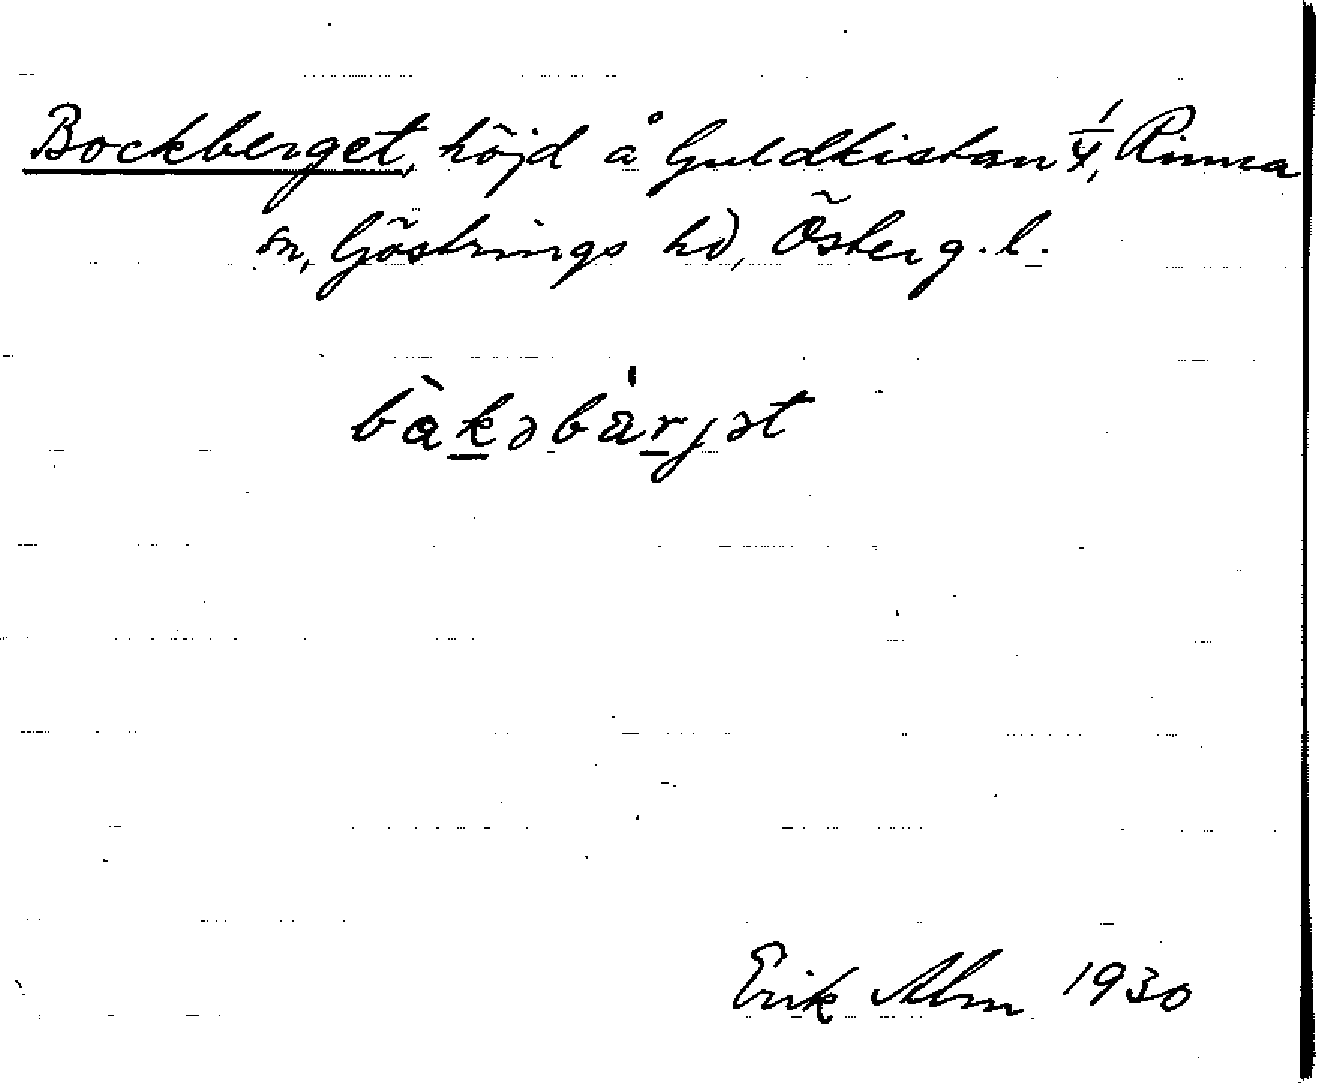 Bockberget, höjd å Guldkistan 1/4, Rinna
sn, Göstrings hd, Österg. l.
bàkəbärjət
Erik Alm 1930